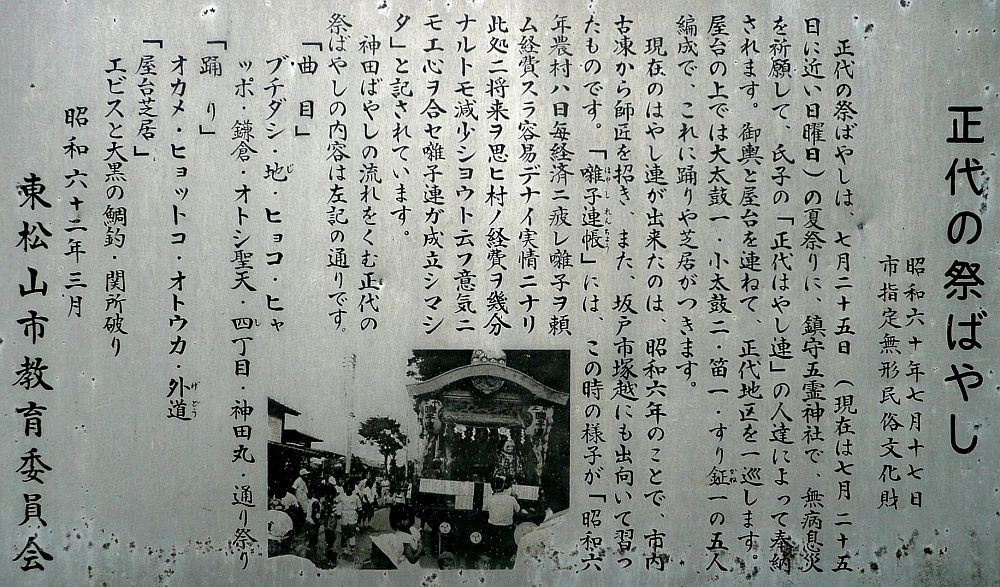 正代の祭ばやし
昭和六十年七月十七日
市指定無形民俗文化財
正代の祭ばやしは、七月二十五日（現在は七月二十五
日に近い日曜日）の夏祭りに、鎮守五霊神社で、無病息災
を祈願して、氏子の「正代はやし連」の人達によって奉納
されます。御輿と屋台を連ねて、正代地区を一巡します。
屋台の上では大太鼓一・小太鼓二・笛一・すり鉦一の五人
編成で、これに踊りや芝居がつきます。
現在のはやし連が出来たのは、昭和六年のことで、市内
古凍から師匠を招き、また、坂戸市塚越にも出向いて習っ
たものです。「囃子連帳」には、この時の様子が「昭和六
年農村ハ日毎経済ニ疲レ囃子ヲ頼
ム経費スラ容易デナイ実情ニナリ
此処ニ将来ヲ思ヒ村ノ経費ヲ幾分
ナルトモ減少シヨウト云フ意気ニ
モエ心ヲ合セ囃子連ガ成立シマシ
タ」と記されています。
神田ばやしの流れをくむ正代の
祭ばやしの内容は左記の通りです。
「曲目」
ブチダシ・地・ヒョコ・ヒャ
ッポ・鎌倉・オトシ聖天・四丁目・神田丸・通り祭り
「踊り」
オカメ・ヒョットコ・オトウカ・外道
「屋台芝居」
エビスと大黒の鯛釣・関所破り
昭和六十二年三月
東松山市教育委員会